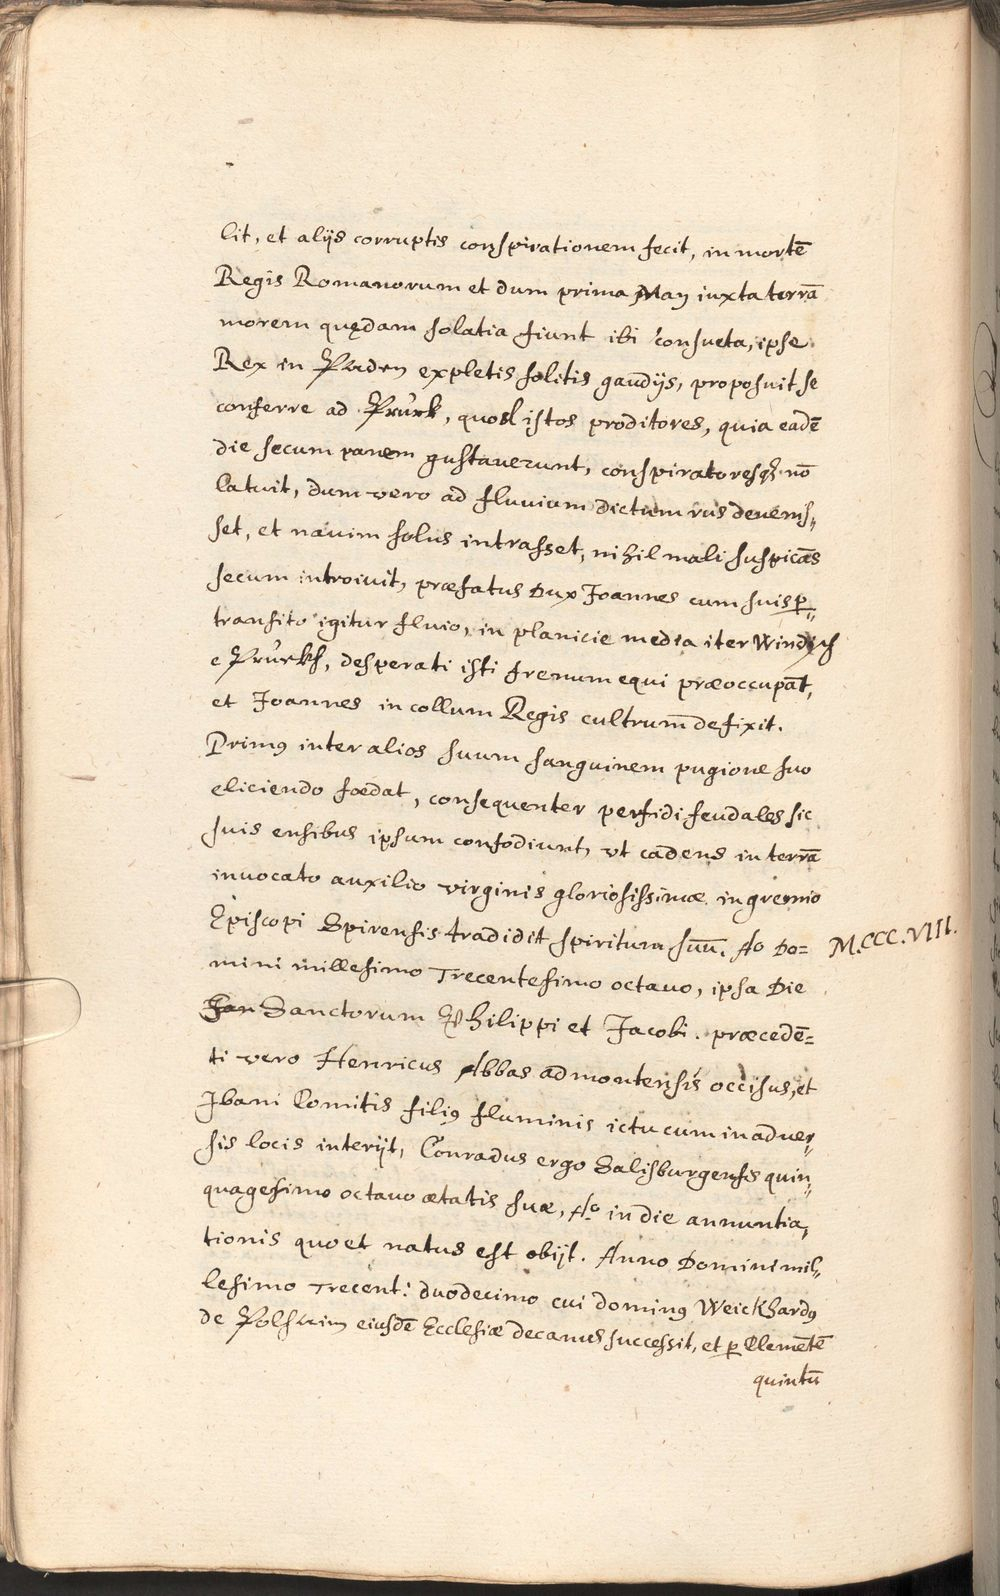 lit, et alijs corruptis conspirationem fecit, in mortē
Regis Romanorum et dum prima May iuxta terrā
morem quędam solatia fiunt ibi consueta, ipse
Rex in Paden expletis solitis gaudijs, proposuit se
conferre ad Prurk, quod istos proditores, quia eadē
die secum panem gustauerunt, conspiratoresq; nō
latuit, dum vero ad fluuium dictum rus deuenis„
set, et nauim solus intrasset, nihil mali suspicās
secum introiuit, præfatus Dux Joannes cum suis p̱„
transito igitur fluio, in planicie media iter Windisch
e Prurkh, desperati isti frenum equi præoccupāt,
et Joannes in collum Regis cultrum̄ defixit.
Primꝰ inter alios suum sanguinem pugione suo
eliciendo fœdat, consequenter perfidi feudales sic
suis ensibus ipsum confodiunt, vt cadens in terrā
inuocato auxilio virginis gloriosissimæ in gremio
Episcopi Spirensis tradidit spiritum suū. Ao Do=
M.CCC.VIII.
mini millesimo Trecentesimo octauo, ipsa Die
Sanctorum Philippi et Jacobi. præcedē=
ti vero Henricus Abbas admontensis occisus, et
Jbani Comitis filiꝰ fluminis ictu cum in aduer„
sis locis interijt, Conradus ergo Salisburgensis quin„
quagesimo octauo ætatis suæ, Ao in die annuntia„
tionis quo et natus est obijt. Anno Domini mil„
lesimo Trecent: duodecimo cui dominꝰ Weickhardꝰ
de Polhaim eiusdē Ecclesiæ decanus successit, et p̱ Clemētē
quintū